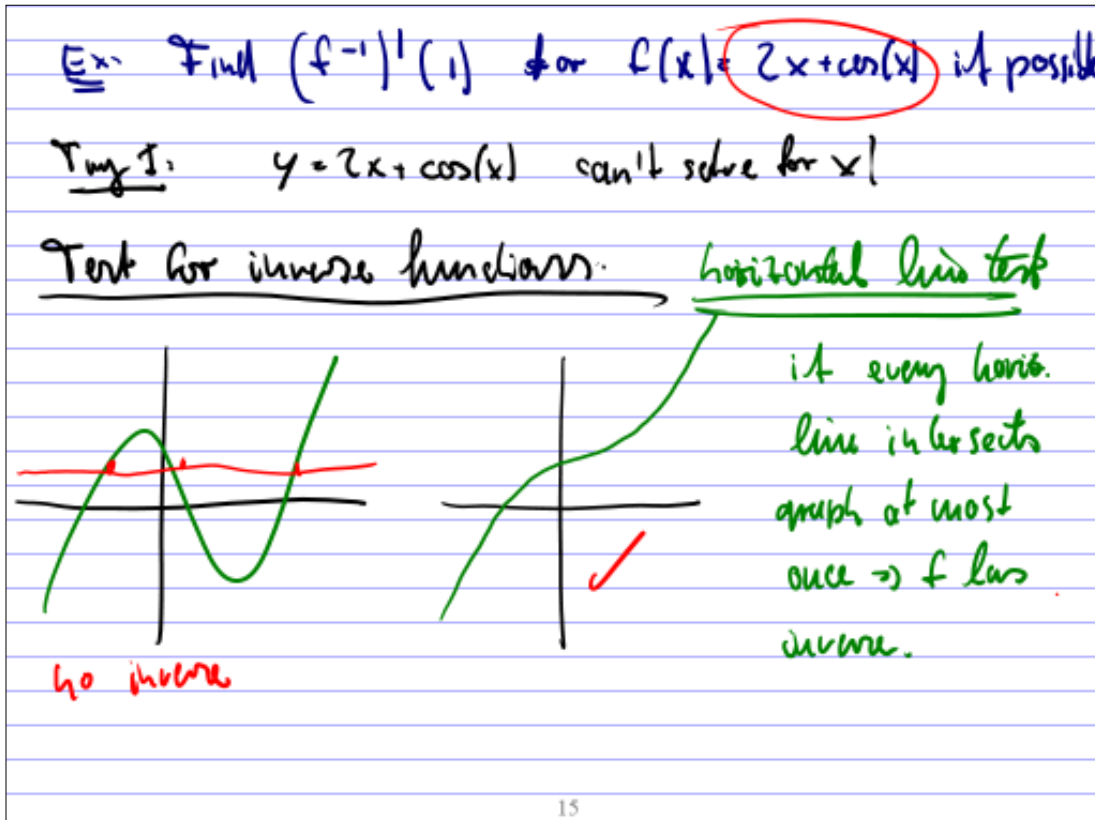 Ex: Find (f⁻¹)'(1) for f(x) = 2x+cos(x) if possible
Try I: y = 2x + cos(x) can't solve for x!
Test for inverse functions.
horizontal line test
if every horiz.
line intersects
graph at most
once => f has
inverse.
no inverse
15